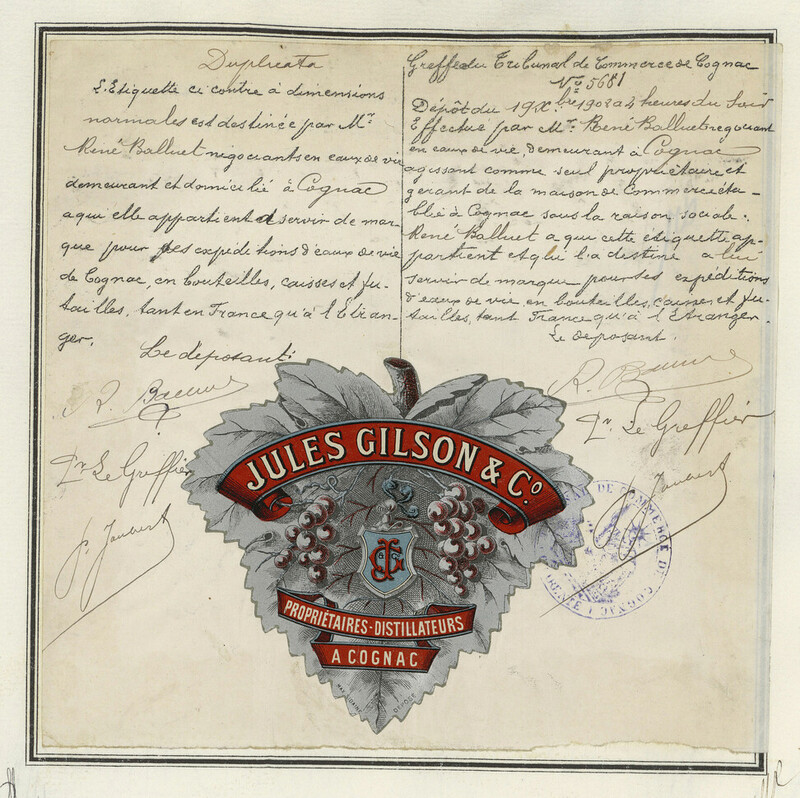 Duplicata
L'Etiquette ci contre à dimensions
normales est destinée par Mr.
René Balluet négociants en eaux de vie
demeurant et domicilié à Cognac
a qui elle appartient à servir de mar-
que pour ses expéditions d'eaux de vie
de Cognac, en bouteilles, caisses et fu-
tailles, tant en France qu'à l'Etran-
ger.
Le deposant:
Pr. Le Greffier
Greffe du Tribunal de Commerce de Cognac
No. 5681
Dépôt du 19 Xbre 1902 a 2 heures du Soir
Effectué par Mr. René Balluet negociant
en eaux de vie, demeurant à Cognac
agissant comme seul propriétaire et
gerant de la maison de Commerce éta-
blie à Cognac sous la raison sociale:
René Balluet a qui cette etiquette ap-
partient et qui l'a destine a lui
servir de marque pour ses expéditions
d'eaux de vie en bouteilles, caisses et fu-
tailles, tant France qu'à l'Etranger
Le deposant.
Pr. Le Greffier
JULES GILSON & Co.
PROPRIÉTAIRES-DISTILLATEURS
A COGNAC
DÉPOSÉ
DE COMMERCE DE COGNAC